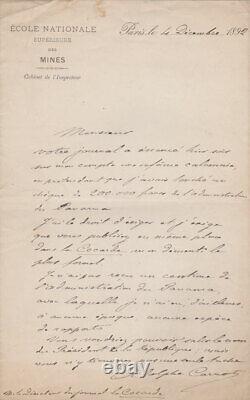 ÉCOLE NATIONALE
SUPÉRIEURE
DES
MINES
Cabinet de l'Inspecteur
Paris, le 4 Décembre 1892
Monsieur
votre journal a énoncé hier soir
sur mon compte une infâme calomnie,
en prétendant que j'avais touché un
chèque de 200.000 francs de l'administration
de Panama
J'ai le droit d'exiger et j'exige
que vous publiiez en même place
dans la Cocarde, un démenti le
plus formel
Je n'ai pas reçu un centime de
l'administration de Panama
avec laquelle je n'ai eu, d'ailleurs
à aucune époque, aucune espèce
de rapports
Vous voudriez pouvoir salir le nom
du Président de la République, mais
vous n'y
Adolphe Carnot
Mr le Directeur du journal la Cocarde